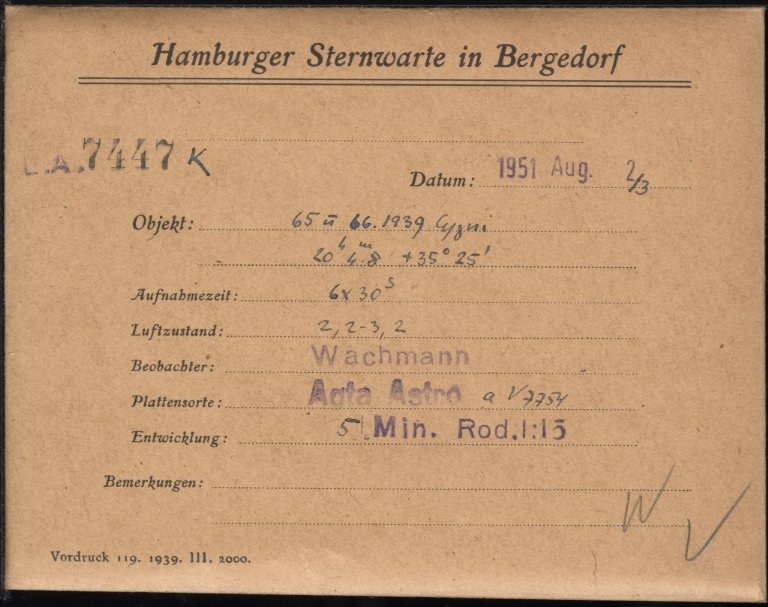 Hamburger Sternwarte in Bergedorf
L.A. 7447 K
Datum: 1951 Aug. 2/3
Objekt: 65 u 66.1939 Cygni
20h 4m.8 +35° 25'
Aufnahmezeit: 6x30s
Luftzustand: 2, 2-3, 2
Beobachter: Wachmann
Plattensorte: Agfa Astro a V7754
Entwicklung: 5 Min. Rod. 1:15
Bemerkungen:
W
Vordruck 119. 1939. III. 2000.